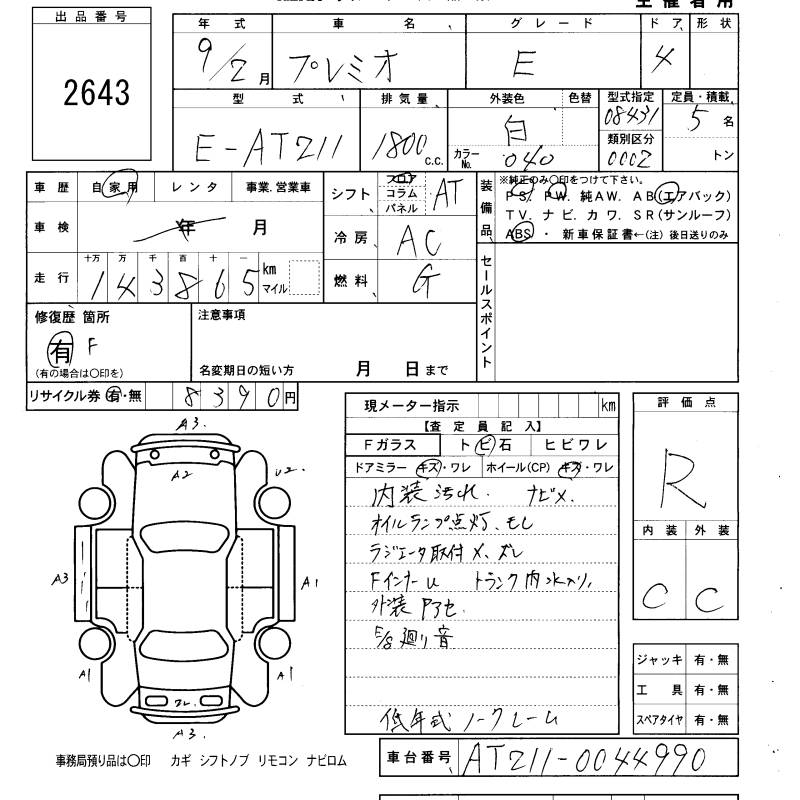 主催者用
出品番号
2643
年式 車名 グレード ドア 形状
9/2月 プレミオ E 4
型式 排気量 外装色 色替 型式指定 定員・積載
E-AT211 1800c.c. 白 08431 5名
カラーNo. 040 類別区分 0002 トン
車歴 自家用 レンタ 事業.営業車
シフト フロア コラム パネル AT
装備品 ※純正のみ〇印をつけて下さい。
PS. PW. 純AW. AB(エアバック)
TV. ナビ. カワ. SR(サンルーフ)
ABS ・ 新車保証書←(注)後日送りのみ
車検 年 月
冷房 AC
走行 十万 万 千 百 十 一
143865 km マイル
燃料 G
セールスポイント
修復歴 箇所
有 F
(有の場合は〇印を)
注意事項
名変期日の短い方 月 日まで
リサイクル券 有・無 8390円
現メーター指示 km
【査定員記入】
Fガラス トビ石 ヒビワレ
ドアミラー キズ・ワレ ホイール(CP) キズ・ワレ
内装汚れ. ナビX.
オイルランプ点灯. モレ
ラジエータ取付X. ズレ
FインナーU トランク内水入り.
外装Pアセ.
E/g廻り音
低年式ノークレーム
評価点
R
内装 外装
C C
ジャッキ 有・無
工具 有・無
スペアタイヤ 有・無
A3.
A2
U2.
A3
A1
A1
A1
ワレ
A3.
事務局預り品は〇印 カギ シフトノブ リモコン ナビロム
車台番号 AT211-0044990